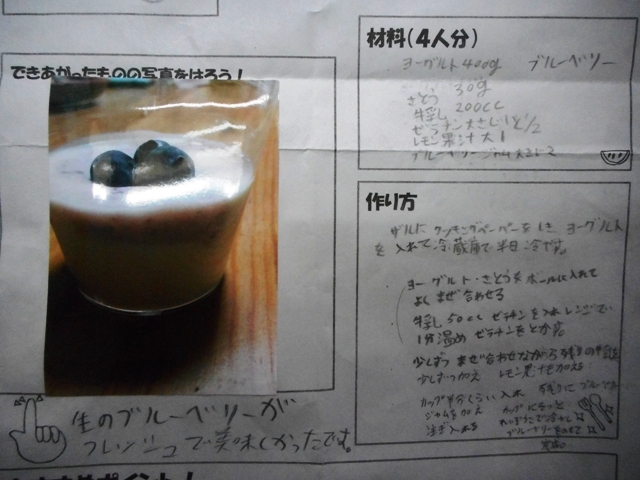 材料(4人分)
ヨーグルト400g ブルーベリー
さとう 30g
牛乳 200cc
ゼラチン大さじ1と1/2
レモン果汁大1
ブルーベリージャム大さじ2
できあがったものの写真をはろう!
作り方
ザルに クッキングペーパーをしき ヨーグルト
を入れて冷蔵庫で半日冷やす。
ヨーグルト・さとうをボールに入れて
よくまぜ合わせる
牛乳50cc ゼラチンを入れレンジで
1分温め ゼラチンをとかす。
少しずつまぜ合わせながら残りの牛乳を
少しずつ加え レモン果汁を加える
カップ半分くらい入れ 残りにブルーベリー
ジャムを加え
生のブルーベリーが
フレッシュで美味しかったです。
ポイント!